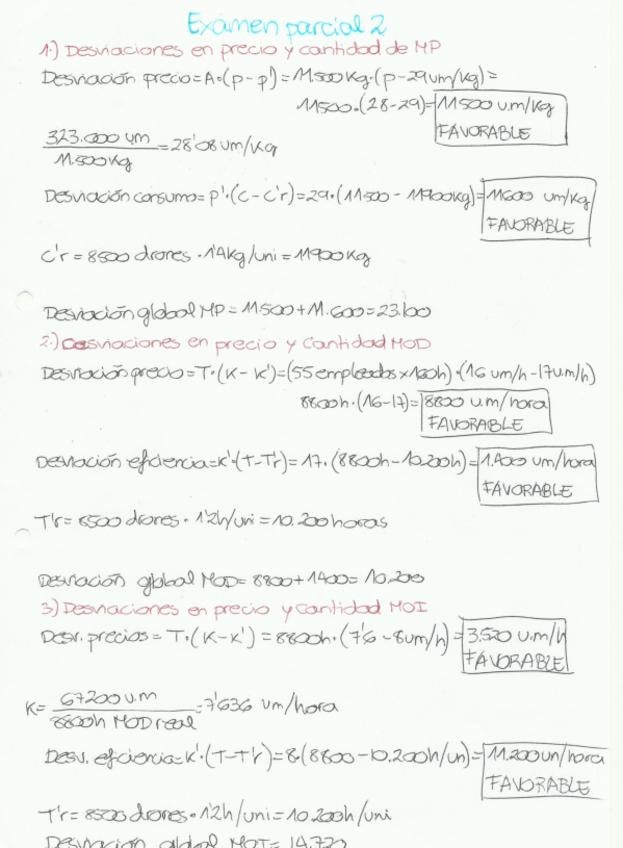 Examen parcial 2
1.) Desviaciones en precio y cantidad de MP
Desviación precio=A·(p-p')=11.500Kg·(p-29um/kg)=
11500·(28-29)=11500 u.m/kg
FAVORABLE
323.000 um
11.500kg
=28'08um/Kg
Desviación consumo=p'·(c-c'r)=29·(11500-11900kg)=11600 um/kg
FAVORABLE
c'r=8500 drones·1'4kg/uni=11900Kg
Desviación global MP=11500+11.600=23.100
2.) Desviaciones en precio y cantidad MOD
Desviación precio=T·(K-K')=(55 empleados x160h)·(16 um/h-17u.m/h)
8800h·(16-17)=8800 u.m/hora
FAVORABLE
Desviación eficiencia=K'·(T-T'r)=17·(8800h-10.200h)=1.400 um/hora
FAVORABLE
T'r=8500 drones·1'2h/uni=10.200horas
Desviación global MOD=8800+1400=10.200
3) Desviaciones en precio y cantidad MOI
Desv. precios=T·(K-K')=8800h·(7'6-8um/h)=3.520 u.m/h
FAVORABLE
K=
67200 u.m
8800h MOD real
=7'636 um/hora
Desv. eficiencia=K'·(T-T'r)=8·(8800-10.200h/un)=11.200un/hora
FAVORABLE
T'r=8500 drones·1'2h/uni=10.200h/uni
Desviación global MOI=14.720